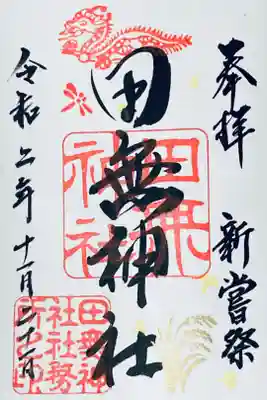 奉拝 新嘗祭
田無神社
田無神社
令和二年十一月
田無神
社社務